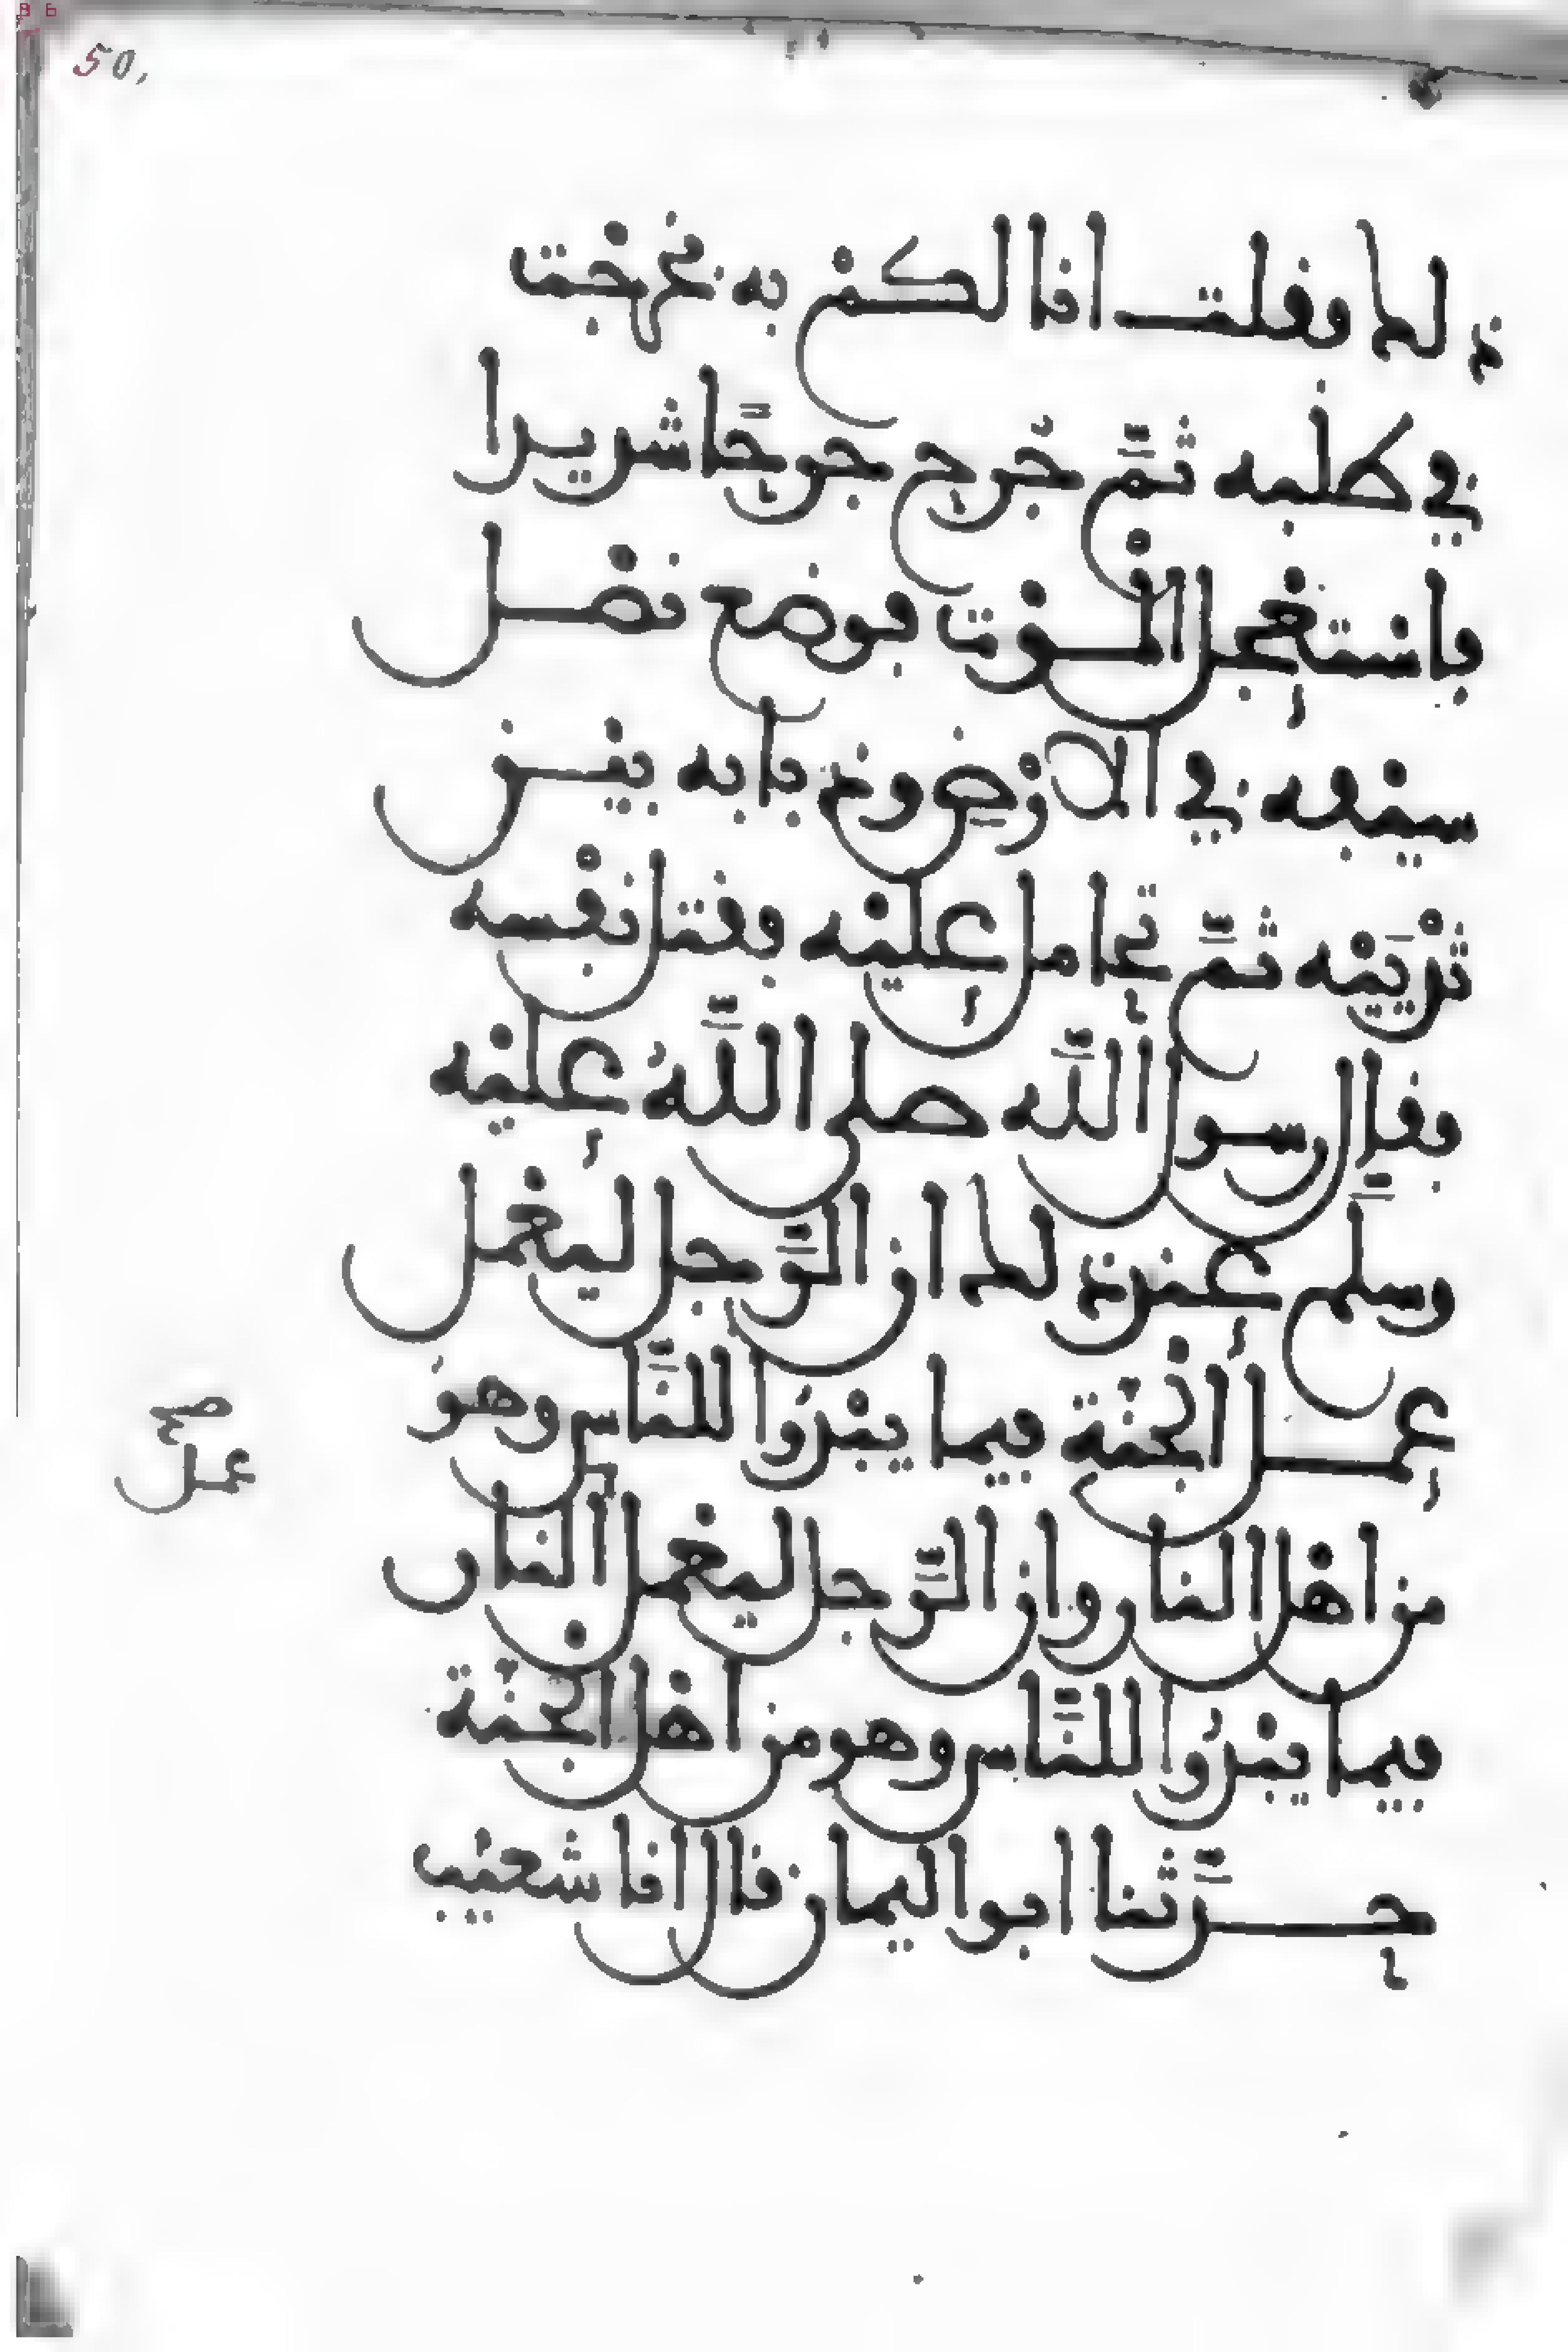 50,
ذلك فقلت انا لكم به فخرجت
في طلبه ثمَّ جُرح جرحًا شديدا
فاستعجل الموت فوضع نصل
سيفه في الارض وذبابه بين
ثدييه ثمَّ تحامل عليه فقتل نفسه
فقال رسول الله صلى اللهُ عليه
وسلم عند ذلك ان الرَّجل ليعمل
عمل الجنّة فيما يبدُوا للنَّاس وهو
من اهل النار وان الرَّجل ليعمل النار
فيما يبدُوا للنَّاس وهو من اهل الجنّة
حدَّثنا ابو اليمان قال انا شعيب
صح
عمل